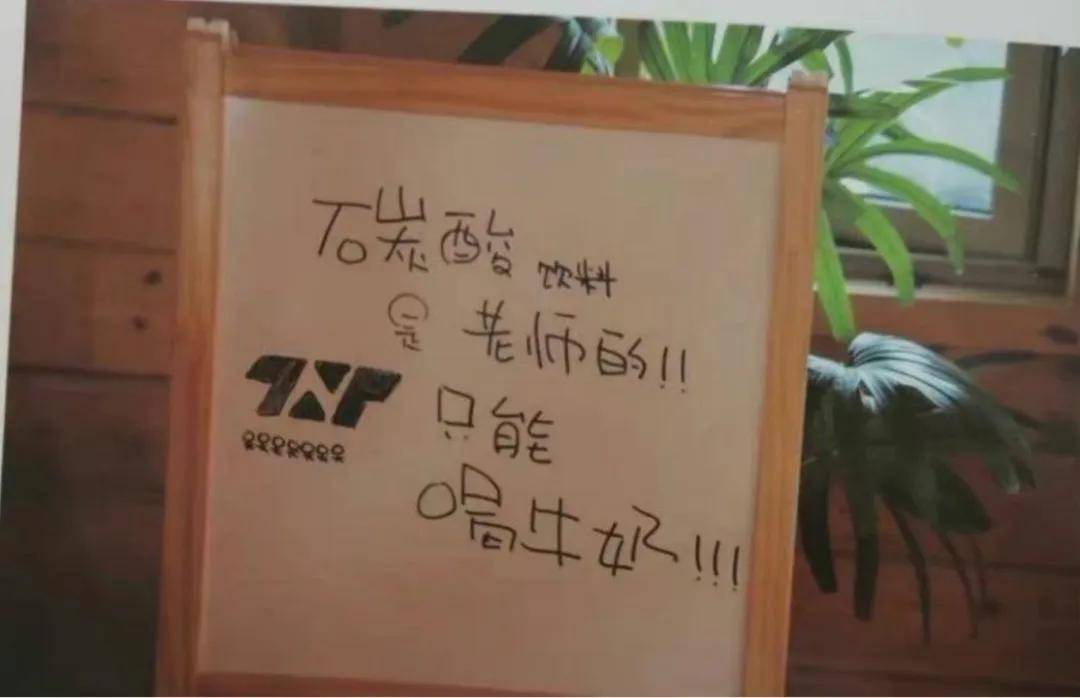 碳酸饮料
是老师的!!
TXP
只能
喝牛奶!!!